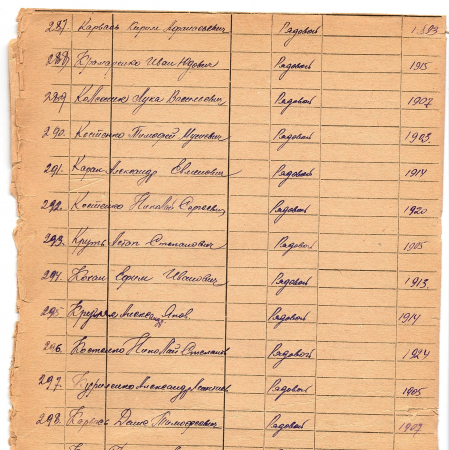 287. Карвась Ефрем Афанасьевич Рядовой 1893
288. Крамаренко Иван Юдович Рядовой 1915
289 Лука Васильевич Рядовой 1907
290. Костенко Тимофей Рядовой 1903
291. Александр Рядовой 1914
292. Костенко Николай Сергеевич Рядовой 1920
293. Круть Остап Степанович Рядовой 1905
294. Кохан Ефим Иванович Рядовой 1913
295 Александр Яков. Рядовой 1914
296. Костенко Николай Степанов Рядовой 1924
297. Куриленко Александр Рядовой 1905
298. Карвась Тимофеевич Рядовой 1907